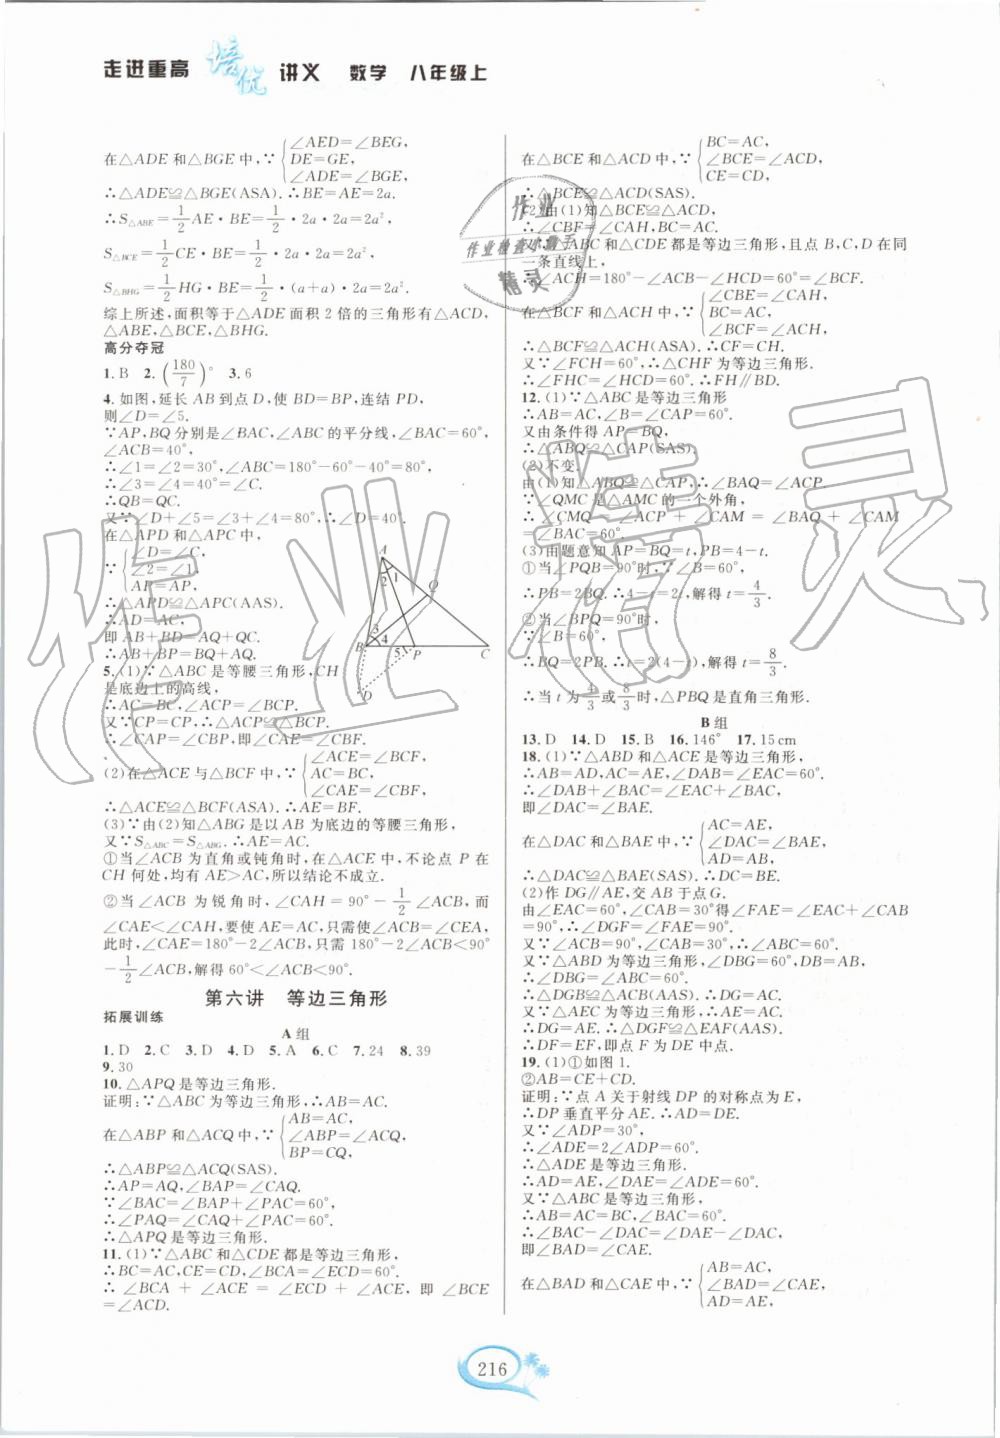 走进重高 培优 讲义 数学 八年级上
∠AED=∠BEG,
在△ADE和△BGE中,∵ DE=GE,
∠ADE=∠BGE,
∴△ADE≌△BGE(ASA).∴BE=AE=2a.
∴S△ABE=1/2 AE·BE=1/2·2a·2a=2a²,
S△BCE=1/2 CE·BE=1/2·2a·2a=2a²,
S△BHG=1/2 HG·BE=1/2·(a+a)·2a=2a².
综上所述,面积等于△ADE面积2倍的三角形有△ACD,
△ABE,△BCE,△BHG.
高分夺冠
1.B 2.(180/7)° 3.6
4.如图,延长AB到点D,使BD=BP,连结PD,
则∠D=∠5.
∵AP,BQ分别是∠BAC,∠ABC的平分线,∠BAC=60°,
∠ACB=40°,
∴∠1=∠2=30°,∠ABC=180°-60°-40°=80°,
∴∠3=∠4=40°=∠C.
∴QB=QC.
又∵∠D+∠5=∠3+∠4=80°,∴∠D=40°.
在△APD和△APC中,
∠D=∠C,
∵ ∠2=∠1,
AP=AP,
∴△APD≌△APC(AAS).
∴AD=AC,
即AB+BD=AQ+QC.
∴AB+BP=BQ+AQ.
A 1 2 Q 3 4 B 5 P C D
5.(1)∵△ABC是等腰三角形,CH
是底边上的高线,
∴AC=BC,∠ACP=∠BCP.
又∵CP=CP,∴△ACP≌△BCP.
∴∠CAP=∠CBP,即∠CAE=∠CBF.
∠ACE=∠BCF,
(2)在△ACE与△BCF中,∵ AC=BC,
∠CAE=∠CBF,
∴△ACE≌△BCF(ASA).∴AE=BF.
(3)∵由(2)知△ABG是以AB为底边的等腰三角形,
又∵S△ABC=S△ABG,∴AE=AC.
①当∠ACB为直角或钝角时,在△ACE中,不论点P在
CH何处,均有AE>AC,所以结论不成立.
②当∠ACB为锐角时,∠CAH=90°-1/2∠ACB,而
∠CAE<∠CAH,要使AE=AC,只需使∠ACB=∠CEA,
此时,∠CAE=180°-2∠ACB,只需180°-2∠ACB<90°
-1/2∠ACB,解得60°<∠ACB<90°.
第六讲 等边三角形
拓展训练
A组
1.D 2.C 3.D 4.D 5.A 6.C 7.24 8.39
9.30
10.△APQ是等边三角形.
证明:∵△ABC为等边三角形,∴AB=AC.
AB=AC,
在△ABP和△ACQ中,∵ ∠ABP=∠ACQ,
BP=CQ,
∴△ABP≌△ACQ(SAS).
∴AP=AQ,∠BAP=∠CAQ.
∵∠BAC=∠BAP+∠PAC=60°,
∴∠PAQ=∠CAQ+∠PAC=60°,
∴△APQ是等边三角形.
11.(1)∵△ABC和△CDE都是等边三角形,
∴BC=AC,CE=CD,∠BCA=∠ECD=60°.
∴∠BCA+∠ACE=∠ECD+∠ACE,即∠BCE
=∠ACD.
BC=AC,
在△BCE和△ACD中,∵ ∠BCE=∠ACD,
CE=CD,
∴△BCE≌△ACD(SAS).
(2)由(1)知△BCE≌△ACD,
∴∠CBF=∠CAH,BC=AC.
又∵△ABC和△CDE都是等边三角形,且点B,C,D在同
一条直线上,
∴∠ACH=180°-∠ACB-∠HCD=60°=∠BCF.
∠CBE=∠CAH,
在△BCF和△ACH中,∵ BC=AC,
∠BCF=∠ACH,
∴△BCF≌△ACH(ASA).∴CF=CH.
又∵∠FCH=60°,∴△CHF为等边三角形.
∴∠FHC=∠HCD=60°.∴FH∥BD.
12.(1)∵△ABC是等边三角形
∴AB=AC,∠B=∠CAP=60°.
又由条件得AP=BQ,
∴△ABQ≌△CAP(SAS).
(2)不变.
由(1)知△ABQ≌△CAP,∴∠BAQ=∠ACP.
∵∠QMC是△AMC的一个外角,
∴∠CMQ=∠ACP+∠CAM=∠BAQ+∠CAM
=∠BAC=60°.
(3)由题意知AP=BQ=t,PB=4-t.
①当∠PQB=90°时,∵∠B=60°,
∴PB=2BQ.∴4-t=2t,解得t=4/3.
②当∠BPQ=90°时,
∵∠B=60°,
∴BQ=2PB.∴t=2(4-t),解得t=8/3.
∴当t为4/3或8/3时,△PBQ是直角三角形.
B组
13.D 14.D 15.B 16.146° 17.15cm
18.(1)∵△ABD和△ACE是等边三角形,
∴AB=AD,AC=AE,∠DAB=∠EAC=60°.
∴∠DAB+∠BAC=∠EAC+∠BAC,
即∠DAC=∠BAE.
AC=AE,
在△DAC和△BAE中,∵ ∠DAC=∠BAE,
AD=AB,
∴△DAC≌△BAE(SAS).∴DC=BE.
(2)作DG∥AE,交AB于点G.
由∠EAC=60°,∠CAB=30°得∠FAE=∠EAC+∠CAB
=90°,∴∠DGF=∠FAE=90°.
又∵∠ACB=90°,∠CAB=30°,∴∠ABC=60°.
又∵△ABD为等边三角形,∠DBG=60°,DB=AB.
∴∠DBG=∠ABC=60°.
∴△DGB≌△ACB(AAS).∴DG=AC.
又∵△AEC为等边三角形,∴AE=AC.
∴DG=AE.∴△DGF≌△EAF(AAS).
∴DF=EF,即点F为DE中点.
19.(1)①如图1.
②AB=CE+CD.
证明:∵点A关于射线DP的对称点为E,
∴DP垂直平分AE.∴AD=DE.
又∵∠ADP=30°,
∴∠ADE=2∠ADP=60°.
∴△ADE是等边三角形.
∴AD=AE,∠DAE=∠ADE=60°.
又∵△ABC是等边三角形,
∴AB=AC=BC,∠BAC=60°.
∴∠BAC-∠DAC=∠DAE-∠DAC,
即∠BAD=∠CAE.
AB=AC,
在△BAD和△CAE中,∵ ∠BAD=∠CAE,
AD=AE,
216
作业
作业检查小助手
精灵
作业精灵